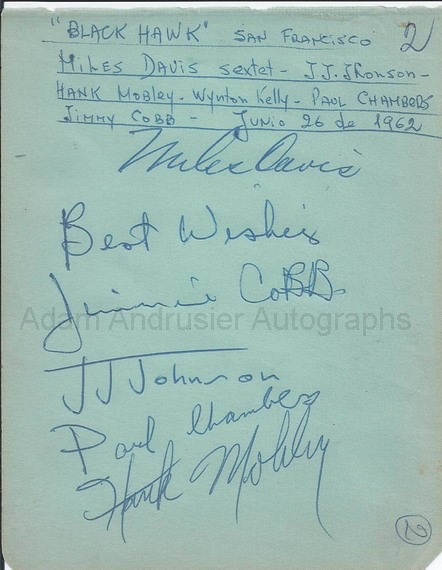 "BLACK HAWK" SAN FRANCISCO 2
MILES DAVIS sextet - JJ. JHONSON -
HANK MOBLEY - Wynton Kelly - PAUL CHAMBOBS
JIMMY COBB - JUNIO 26 de 1962
Miles Davis
Best Wishes
Jimmie COBB
Adam Andrusier Autographs
JJ Johnson
Paul Chambers
Hank Mobley
2